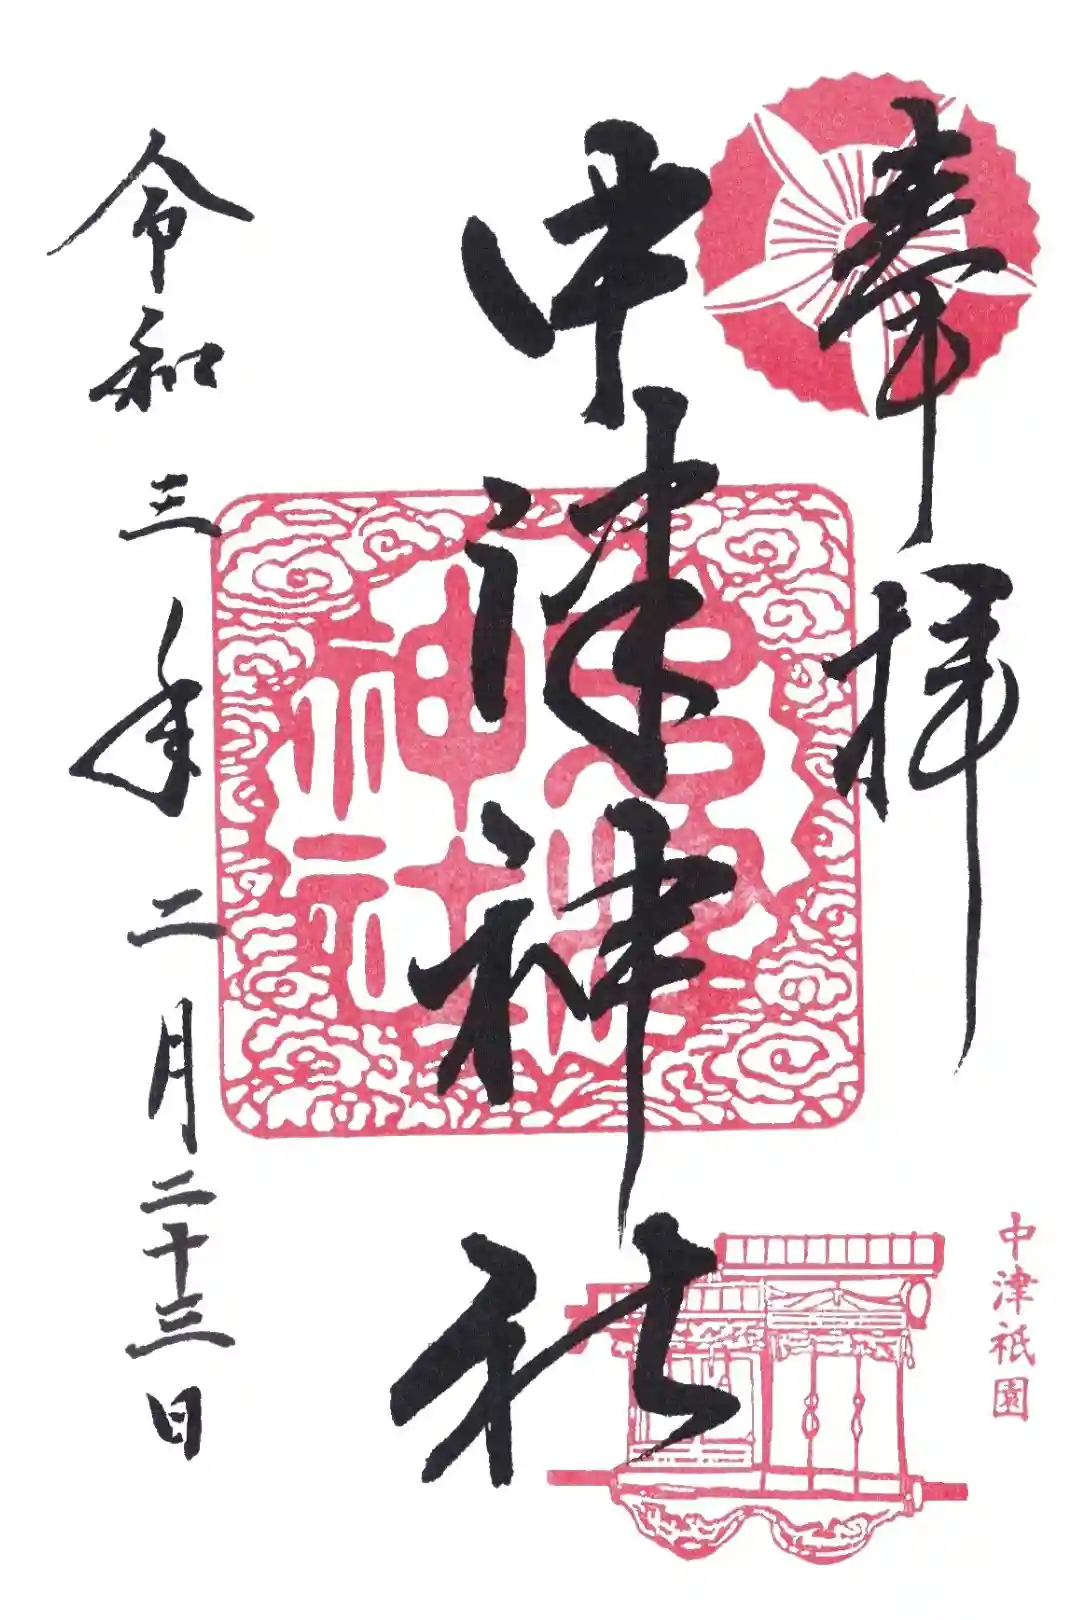 奉拝
中津神社
令和三年二月二十三日
神社
中津祇園